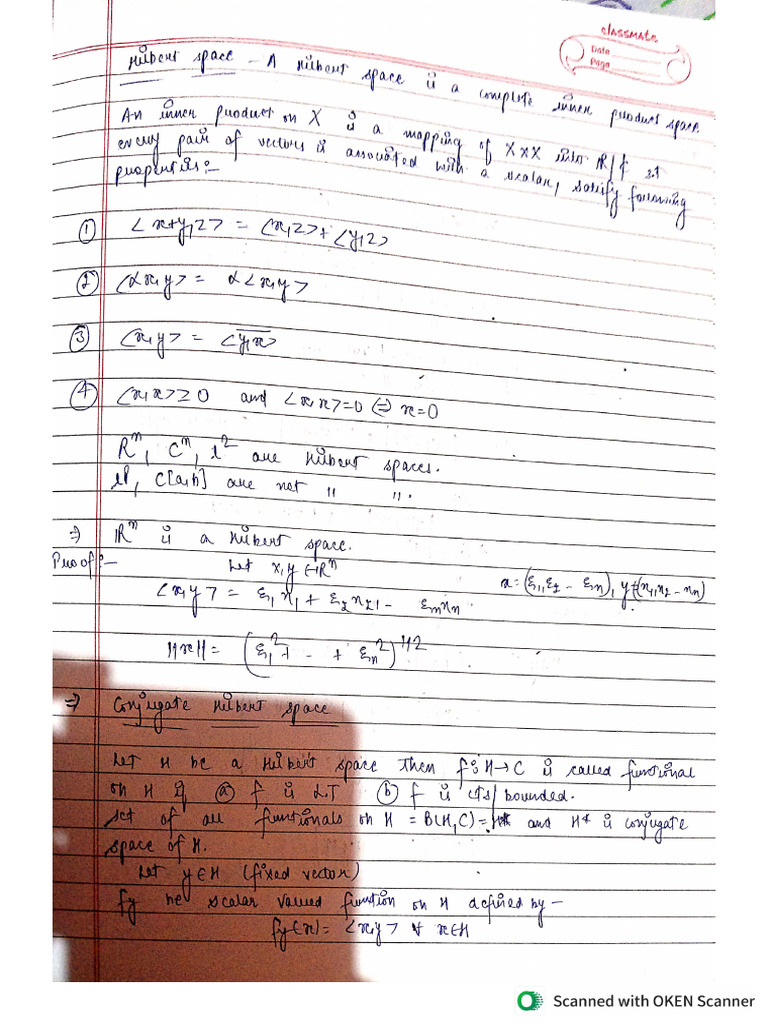 classmate
Date
Page
Hilbert space - A Hilbert space is a complete inner product space
An inner product on X is a mapping of X×X into R/₵ st
every pair of vectors is associated with a scalar, satisfy following
properties:-
① <x+y,z> = <x,z>+<y,z>
② <αx,y> = α<x,y>
③ <x,y> = <\overline{y,x}>
④ <x,x>≥0 and <x,x>=0 ⇔ x=0
Rⁿ, Cⁿ, l² are Hilbert spaces.
lᵖ, C[a,b] are not " ".
⇒ Rⁿ is a Hilbert space.
Proof:- Let x,y ∈ Rⁿ
x=(ξ₁,ξ₂ - ξn), y=(η₁,η₂ - ηn)
<x,y> = ξ₁η₁ + ξ₂η₂+ - ξnηn
||x|| = (ξ₁²+ - + ξn²)^{1/2}
⇒ Conjugate Hilbert space
Let H be a Hilbert space then f:H→C is called functional
on H if ⓐ f is LT ⓑ f is cts/bounded.
set of all functionals on H = B(H,C) = H* and H* is conjugate
space of H.
Let y∈H (fixed vector)
fy be scalar valued function on H defined by -
fy(x) = <x,y> ∀ x∈H
Scanned with OKEN Scanner